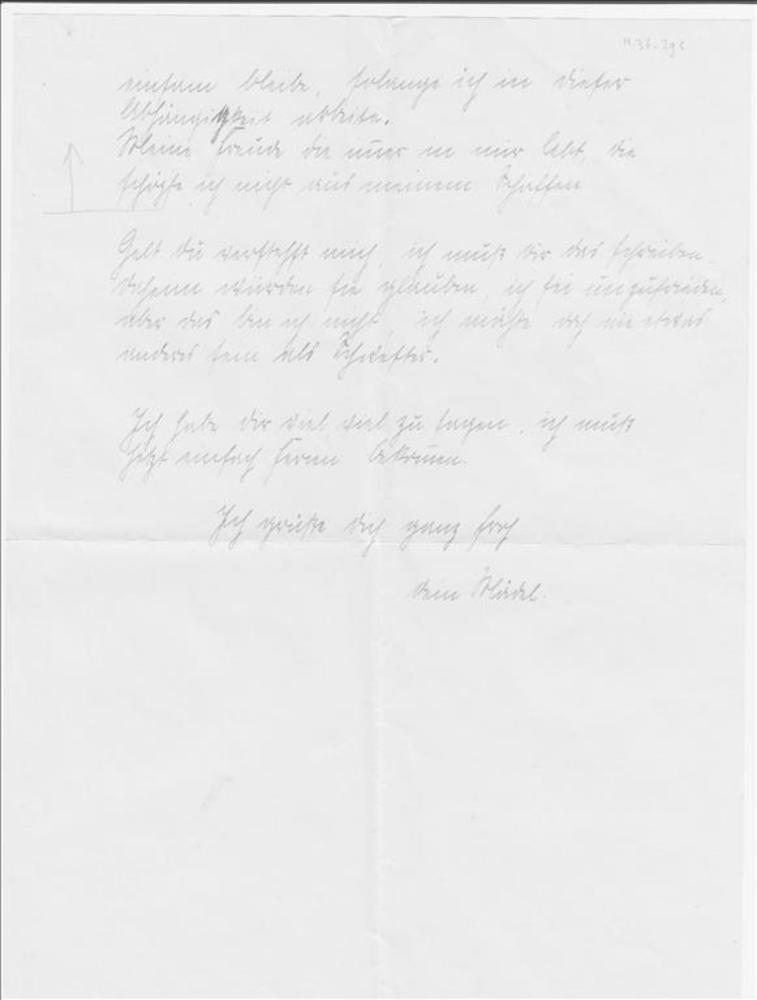 einsam bleibe, solange ich in dieser
Abhängigkeit arbeite.
Meine Freude die in mir lebt, die
schöpfe ich nicht aus meinem Schaffen
Gelt du verstehst mich, ich muß dir das schreiben.
Daheim würden sie glauben, ich sei unzufrieden,
aber das bin ich nicht, ich möchte doch nie etwas
anderes sein als Schwester.
Ich habe dir viel, viel zu sagen, ich muß
jetzt einfach Ferien bekommen.
Ich grüße dich ganz froh
dein Mädel.